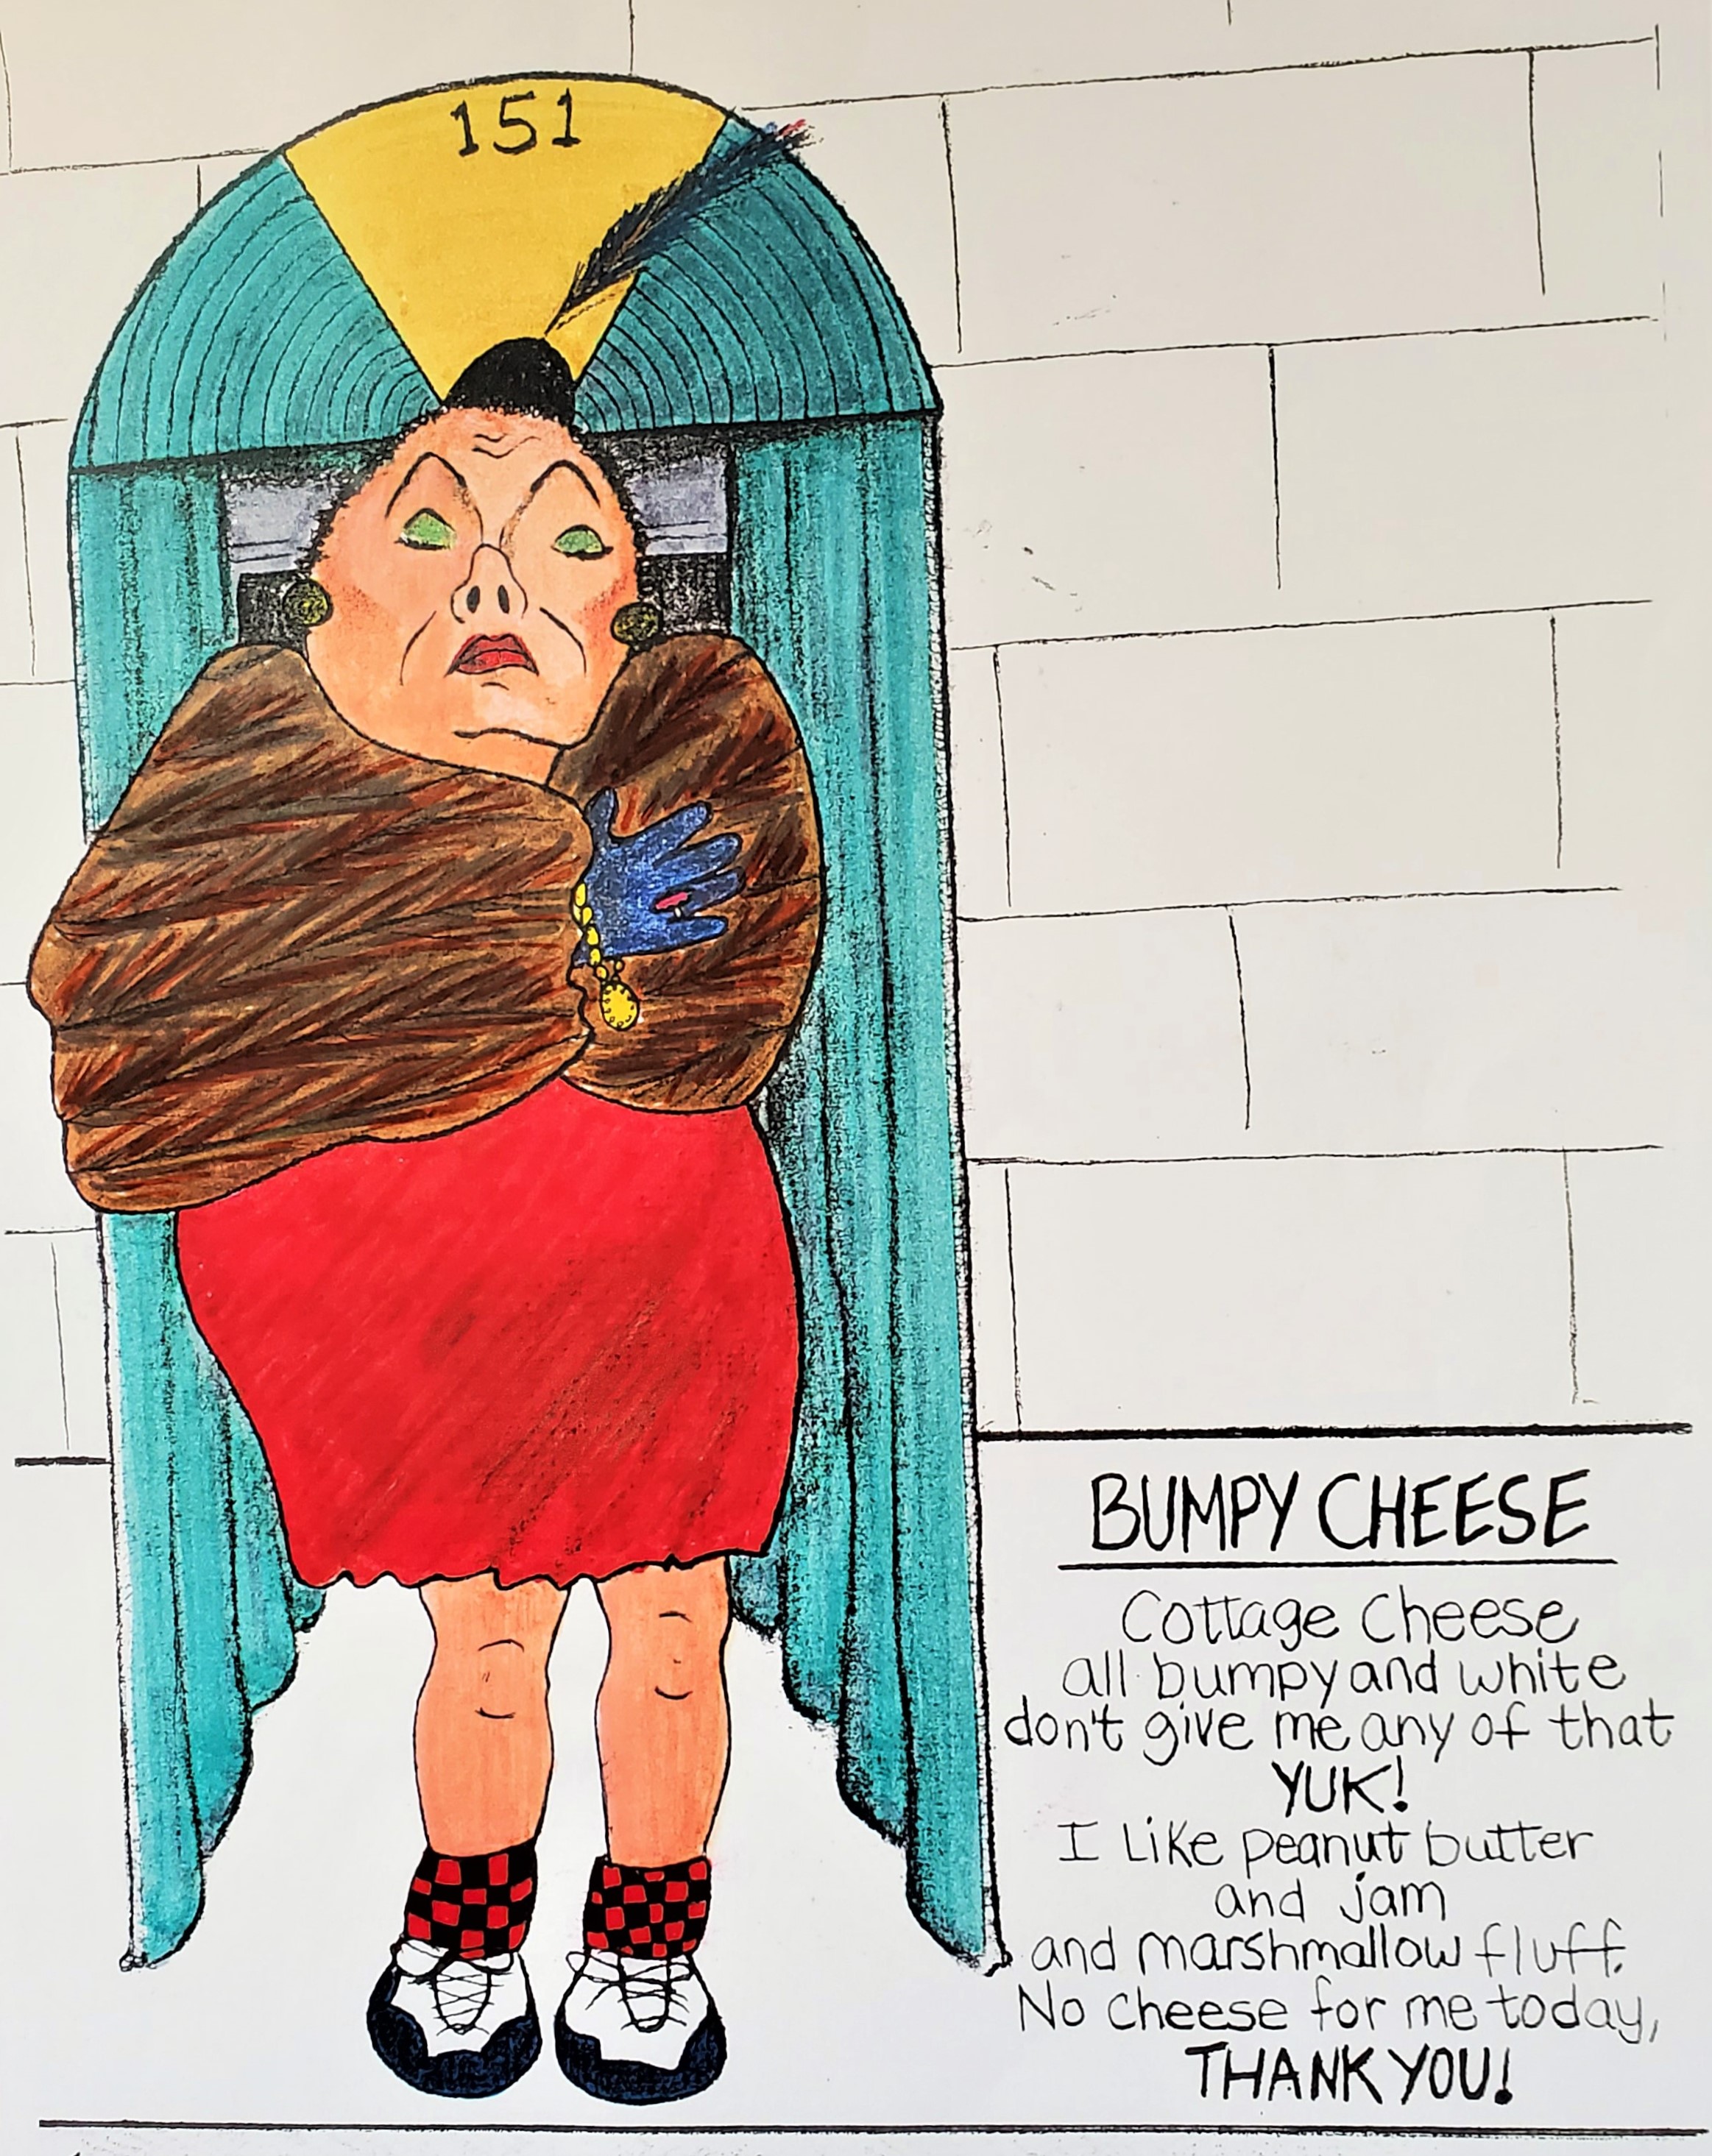 151
BUMPY CHEESE
Cottage Cheese
all bumpy and white
don't give me any of that
YUK!
I Like peanut butter
and jam
and marshmallow fluff.
No Cheese for me today,
THANK YOU!